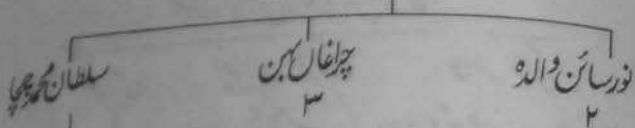 نور سائن والدہ چراغاں بہن سلطان محمد چچا
۲ ۳